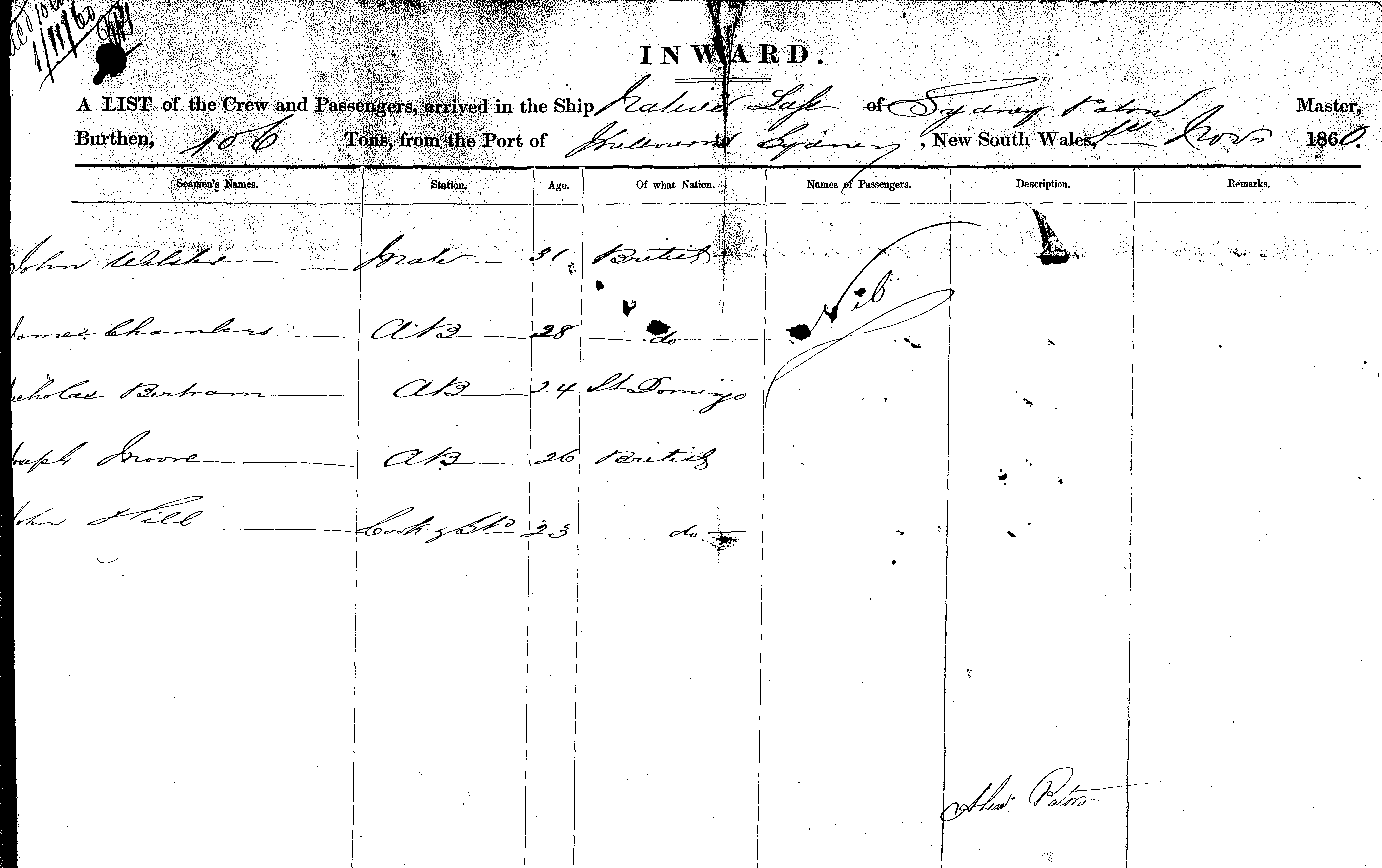 1/11/60
INWARD.
A LIST of the Crew and Passengers, arrived in the Ship Native Lass of Sydney Paton Master,
Burthen, 106 Tons, from the Port of to Sydney, New South Wales, 1st Novr 1860.
Seamen's Names. Station. Age. Of what Nation. Names of Passengers. Description. Remarks.
John Wilkie Mate 31 British Nil
James Chambers AB 28 do
Nicholas Bertram AB 24 St Domingo
Joseph Moore AB 26 British
John Hill Cook & Std 23 do
Alexr Paton